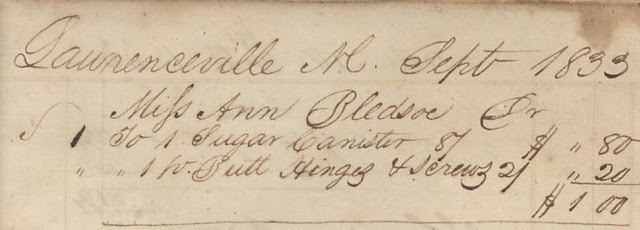 Lawrenceville Il. Sept 1833
Miss Ann Bledsoe Dr
1 To 1 Sugar Canister 8/ $ " 80
" " 1 Pr. Butt Hinges & Screws 2/ " 20
$ 1 00